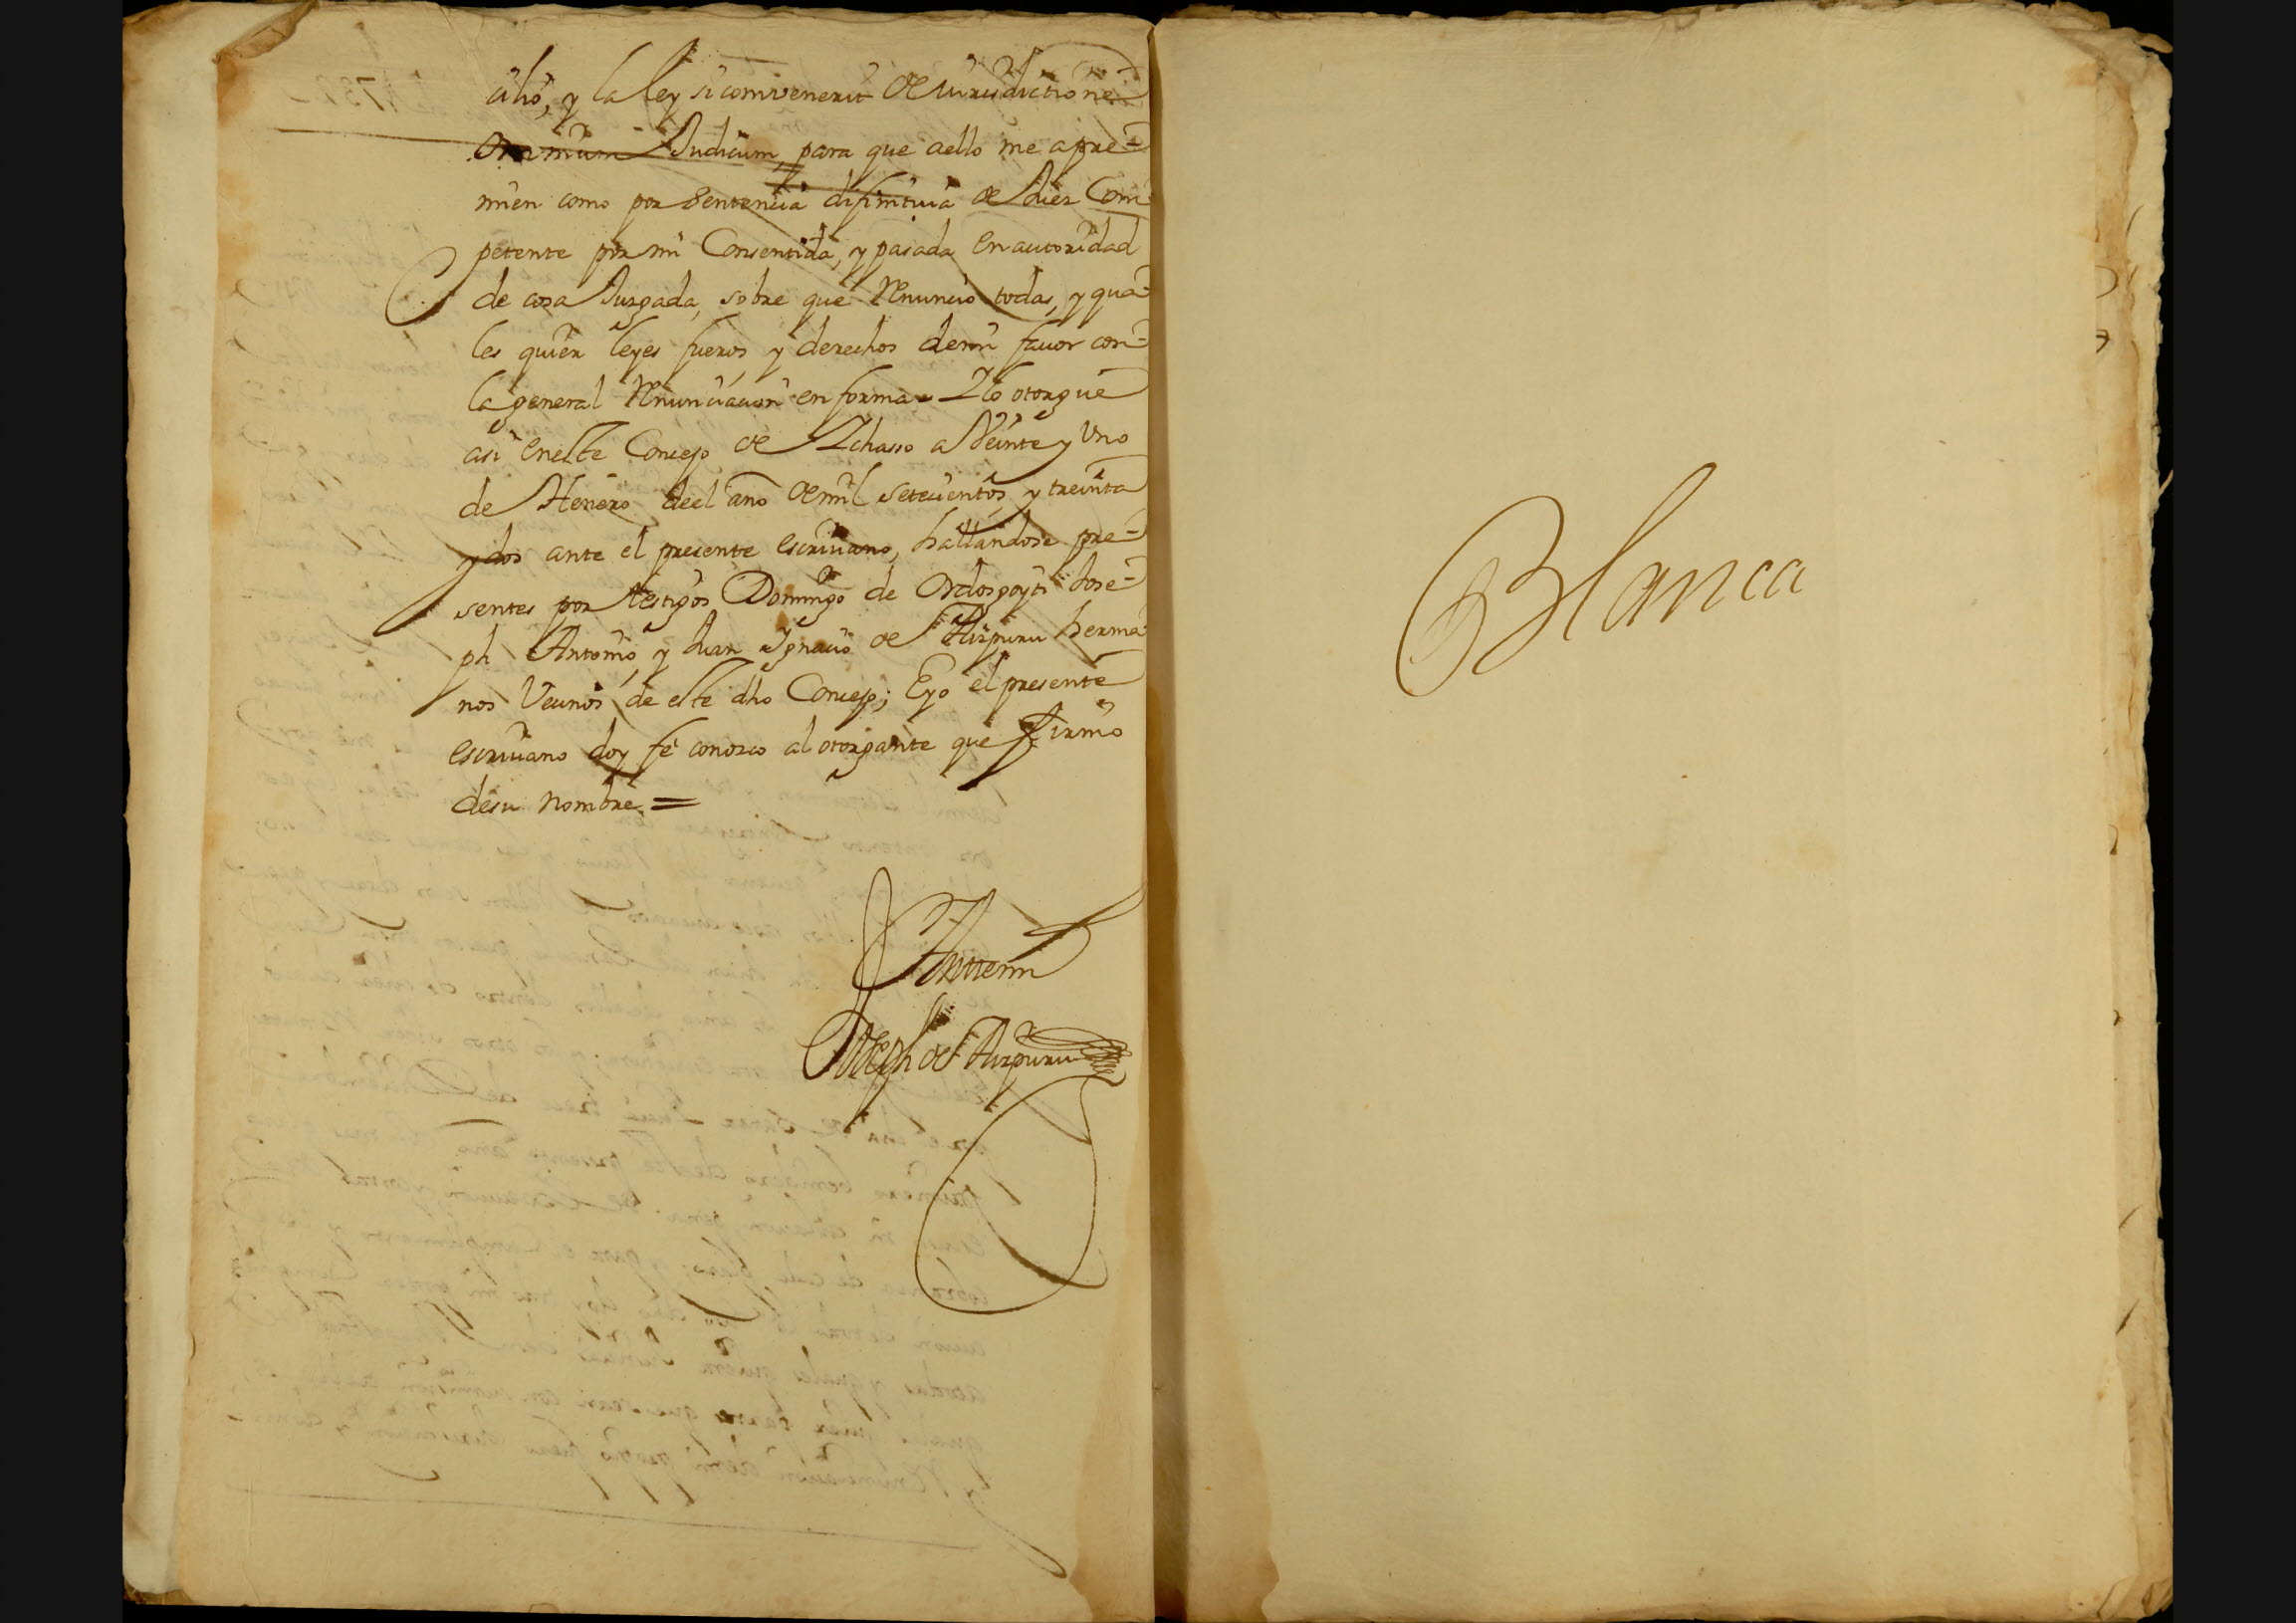 cilio, y la ley si combenerit de jurisdictione
omnium Judicum, para que aello me apre-
mien como por sentencia difinitiva de Juez Com-
petente por mi Consentida, y pasada en autoridad
de cosa Juzgada, sobre que Renuncio todas, y qua-
les quier leyes fueros y derechos demi favor con-
la general Renunciacion en forma. Y lo otorgue
asi en este Concejo de Ichasso a Veinte y Uno
de Henero deel año de mil setecientos y treinta
y dos ante el presente escrivano, hallandose pre-
sentes por testigos Domingo de Ordosgoyti Jose-
ph Antonio, y Juan Ygnacio de Aizpuru herma-
nos Vecinos de este dho Concejo; E yo el presente
escrivano doy fe conozco al otorgante que firmo
desu nombre =
Antemi
Joseph de Aizpuru
Blanca